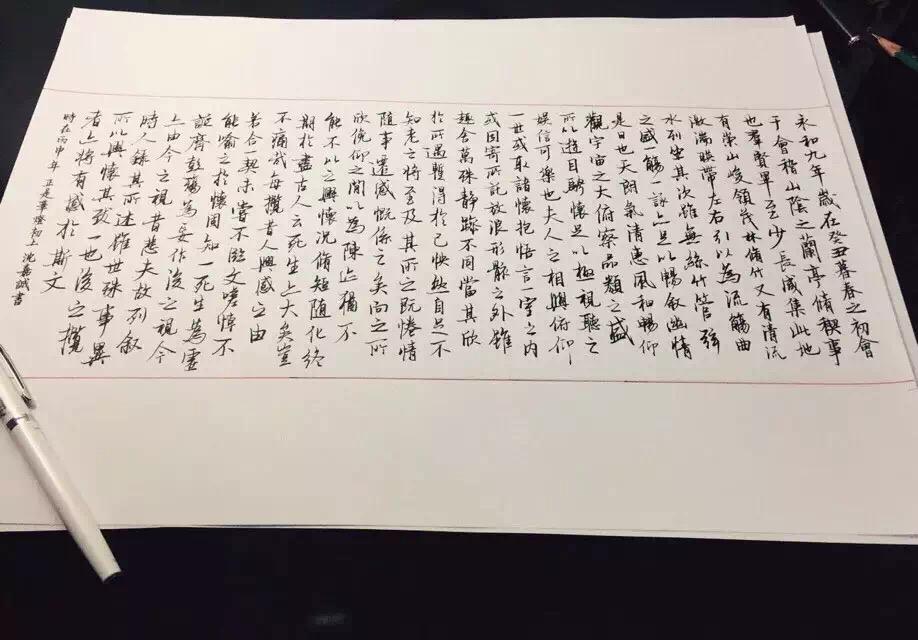 永和九年歲在癸丑暮春之初會
于會稽山陰之蘭亭脩稧事
也羣賢畢至少長咸集此地
有崇山峻領茂林脩竹又有清流
激湍暎帶左右引以為流觴曲
水列坐其次雖無絲竹管弦
之盛一觴一詠亦足以暢叙幽情
是日也天朗氣清惠風和暢仰
觀宇宙之大俯察品類之盛
所以遊目騁懷足以極視聽之
娛信可樂也夫人之相與俯仰
一世或取諸懷抱悟言一室之內
或因寄所託放浪形骸之外雖
趣舍萬殊静躁不同當其欣
於所遇暫得於己快然自足不
知老之將至及其所之既惓情
隨事遷感慨係之矣向之所
欣俛仰之閒以為陳迹猶不
能不以之興懷況脩短隨化終
期於盡古人云死生亦大矣豈
不痛哉每攬昔人興感之由
若合一契未嘗不臨文嗟悼不
能喻之於懷固知一死生為虛
誕齊彭殤為妄作後之視今
亦由今之視昔悲夫故列叙
時人錄其所述雖世殊事異
所以興懷其致一也後之攬
者亦將有感於斯文
時在丙申年正是華燈初上沈嘉誠書